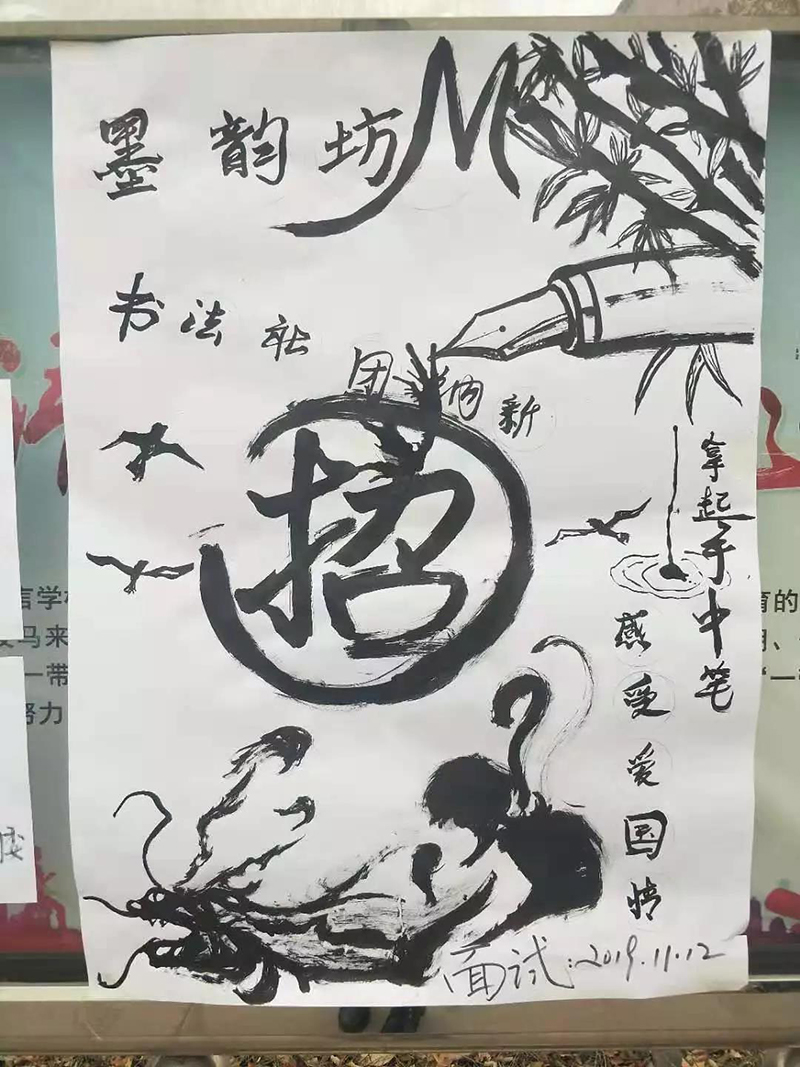 墨韵坊
书法社团纳新
招
拿起手中笔
感受爱国情
面试:2019.11.12
言学
马来
一带
努力
育的
"一